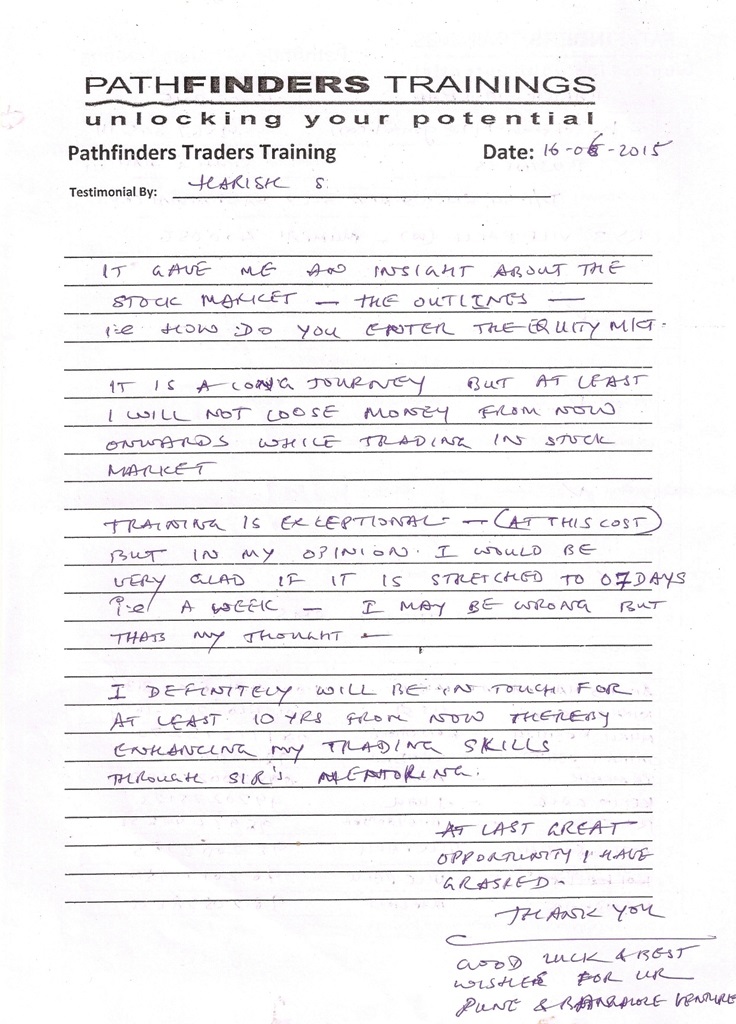 PATHFINDERS TRAININGS
unlocking your potential
Pathfinders Traders Training Date: 16-06-2015
Testimonial By: HARISH S
IT GAVE ME AN INSIGHT ABOUT THE
STOCK MARKET — THE OUTLINES —
i.e HOW DO YOU ENTER THE EQUITY MKT.
IT IS A LONG JOURNEY BUT AT LEAST
I WILL NOT LOOSE MONEY FROM NOW
ONWARDS WHILE TRADING IN STOCK
MARKET
TRAINING IS EXCEPTIONAL — (AT THIS COST)
BUT IN MY OPINION. I WOULD BE
VERY GLAD IF IT IS STRETCHED TO 07 DAYS
i.e A WEEK — I MAY BE WRONG BUT
THATS MY THOUGHT —
I DEFINITELY WILL BE IN TOUCH FOR
AT LEAST 10 YRS FROM NOW THEREBY
ENHANCING MY TRADING SKILLS
THROUGH SIR'S MENTORING.
AT LAST GREAT
OPPORTUNITY I HAVE
GRASPED.
THANK YOU
GOOD LUCK & BEST
WISHES FOR UR
PUNE & BANGALORE VENTURE